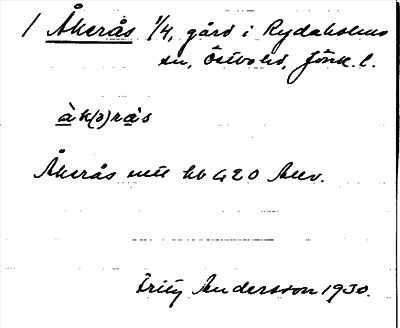 / Åkerås 1/4, gård i Rydaholms
sn, Östbo hd, Jönk. l.
àk(ə)rà's
Åkerås mtl hb G20 Anv.
Fritz Andersson 1930.